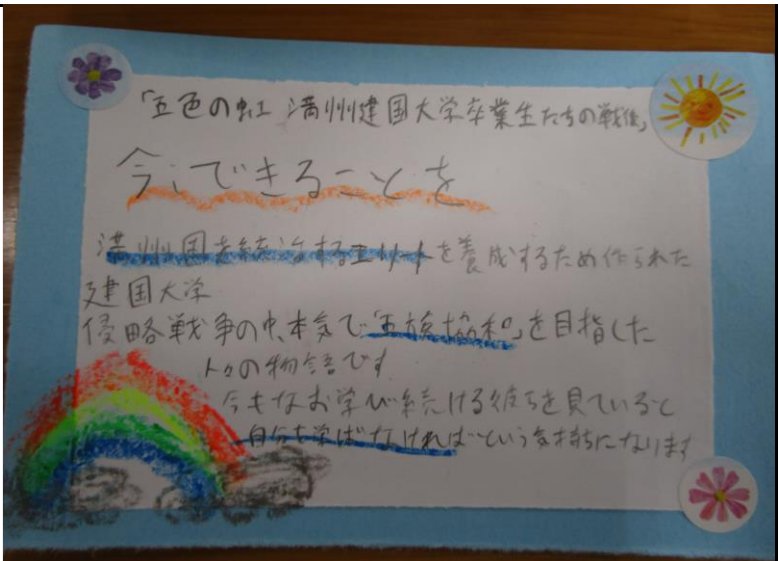 「五色の虹 満州建国大学卒業生たちの戦後」
今、できることを
満州国を統治するエリートを養成するため作られた
建国大学
侵略戦争の中、本気で「五族協和」を目指した
人々の物語です
今もなお学び続ける彼らを見ていると
自分も学ばなければという気持ちになります